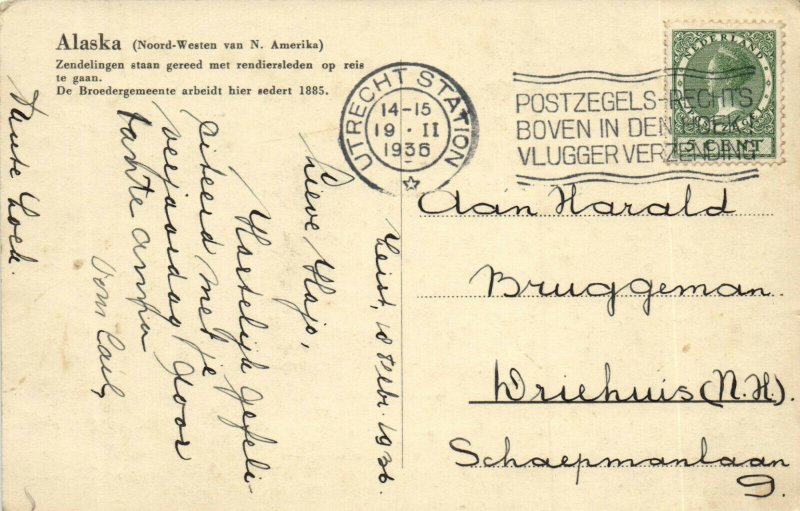 Alaska (Noord-Westen van N. Amerika)
Zendelingen staan gereed met rendiersleden op reis
te gaan.
De Broedergemeente arbeidt hier sedert 1885.
UTRECHT STATION
14-15
19 · II
1936
POSTZEGELS RECHTS
BOVEN IN DEN HOEK=
VLUGGER VERZENDING
NEDERLAND
5 CENT
Aan Harald
Bruggeman
Driehuis (N.H.).
Schaepmanlaan
9.
Zeist, 18 Febr. 1936.
Lieve Hajo,
Hartelijk gefeli-
citeerd met je
verjaardag door
tante
Oom
Tante